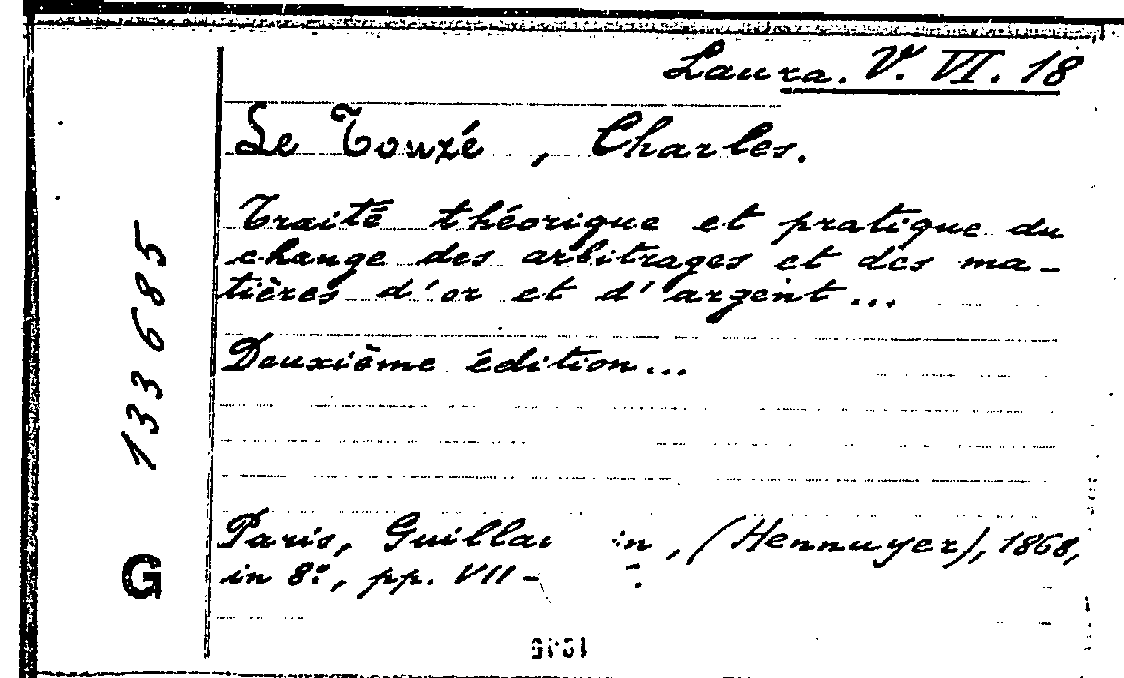 Laura. V. VI. 18
Le Touzé, Charles.
Traité théorique et pratique du
change des arbitrages et des ma-
tières d'or et d'argent...
Deuxième édition...
Paris, (Hennuyer), 1868,
in 8º, pp. VII-
G 133685